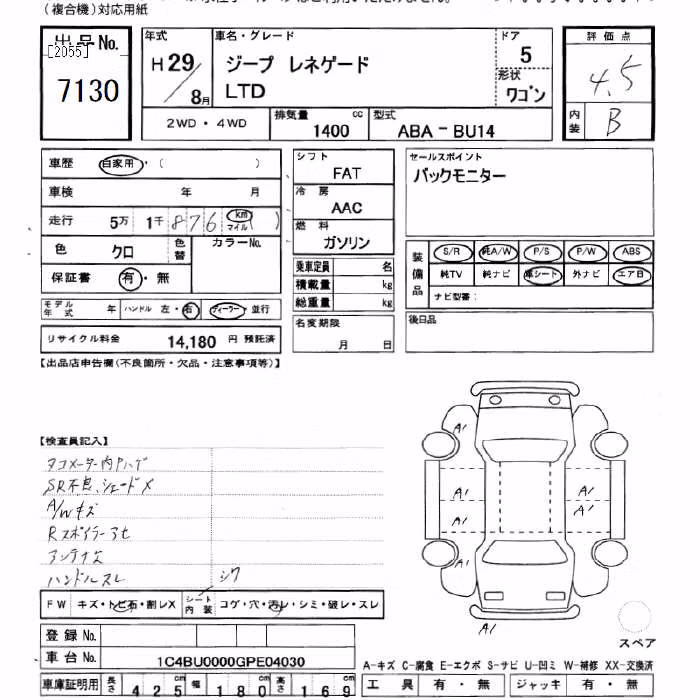 (複合機)対応用紙
出品No.
[2055]
7130
年式
H29/8月
車名・グレード
ジープ レネゲード
LTD
ドア
5
形状
ワゴン
評価点
4.5
内装
B
2WD・4WD
排気量
1400
cc
型式
ABA-BU14
車歴 自家用・( )
車検 年 月
走行 5万 1千 876 km マイル( )
色 クロ 色替 カラーNo.
保証書 有・無
モデル年式 年 ハンドル 左・右 ディーラー・並行
リサイクル料金 14,180 円 預託済
シフト
FAT
冷房
AAC
燃料
ガソリン
乗車定員 名
積載量 kg
総重量 kg
名変期限
月 日
セールスポイント
バックモニター
装備品
S/R 純A/W P/S P/W ABS
純TV 純ナビ 革シート 外ナビ エア日
ナビ型番:
後日品
【出品店申告欄(不良箇所・欠品・注意事項等)】
【検査員記入】
タコメーター内ハゲ
SR不良、シェードメ
A/Wキズ
Rスポイラーアセ
アンテナ
ハンドルスレ
シワ
FW キズ・トビ石・割レX シート内装 コゲ・穴・汚レ・シミ・破レ・スレ
登録No.
車台No. 1C4BU0000GPE04030
車庫証明用 長さ 425cm 幅 180cm 高さ 169cm
A1
A1
A1
A1
A1
A1
A1
スペア
A-キズ C-腐食 E-エクボ S-サビ U-凹ミ W-補修 XX-交換済
工具 有・無 ジャッキ 有・無